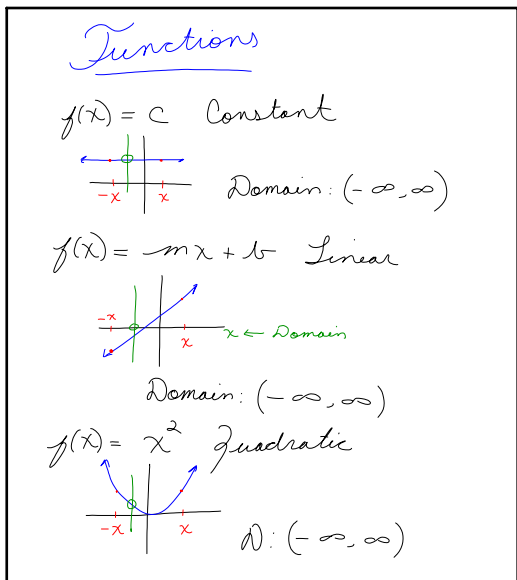 Functions
f(x) = c Constant
-x x
Domain: (-∞,∞)
f(x) = mx + b Linear
-x
x x ← Domain
Domain: (-∞,∞)
f(x) = x² Quadratic
-x x
D: (-∞,∞)